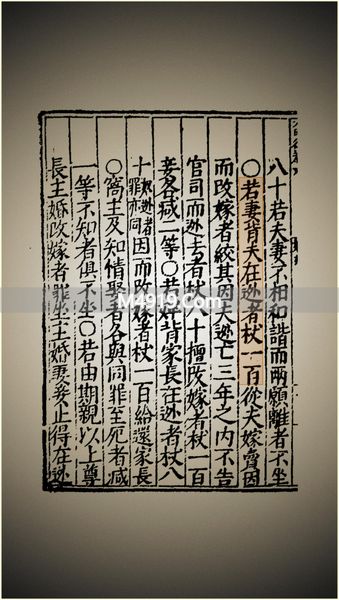 八十若夫妻不相和諧而兩願離者不坐
○若妻背夫在逃者杖一百從夫嫁賣因
而改嫁者絞其因夫逃亡三年之内不告
官司而逃去者杖八十擅改嫁者杖一百
妾各减二等○若婢背家長在逃者杖八
十奴逃者罪亦同因而改嫁者杖一百給還家長
○窩主及知情娶者各與同罪至死者减
一等不知者俱不坐○若由期親以上尊
長主婚改嫁者罪坐主婚妻妾止得在逃
M4919.Com